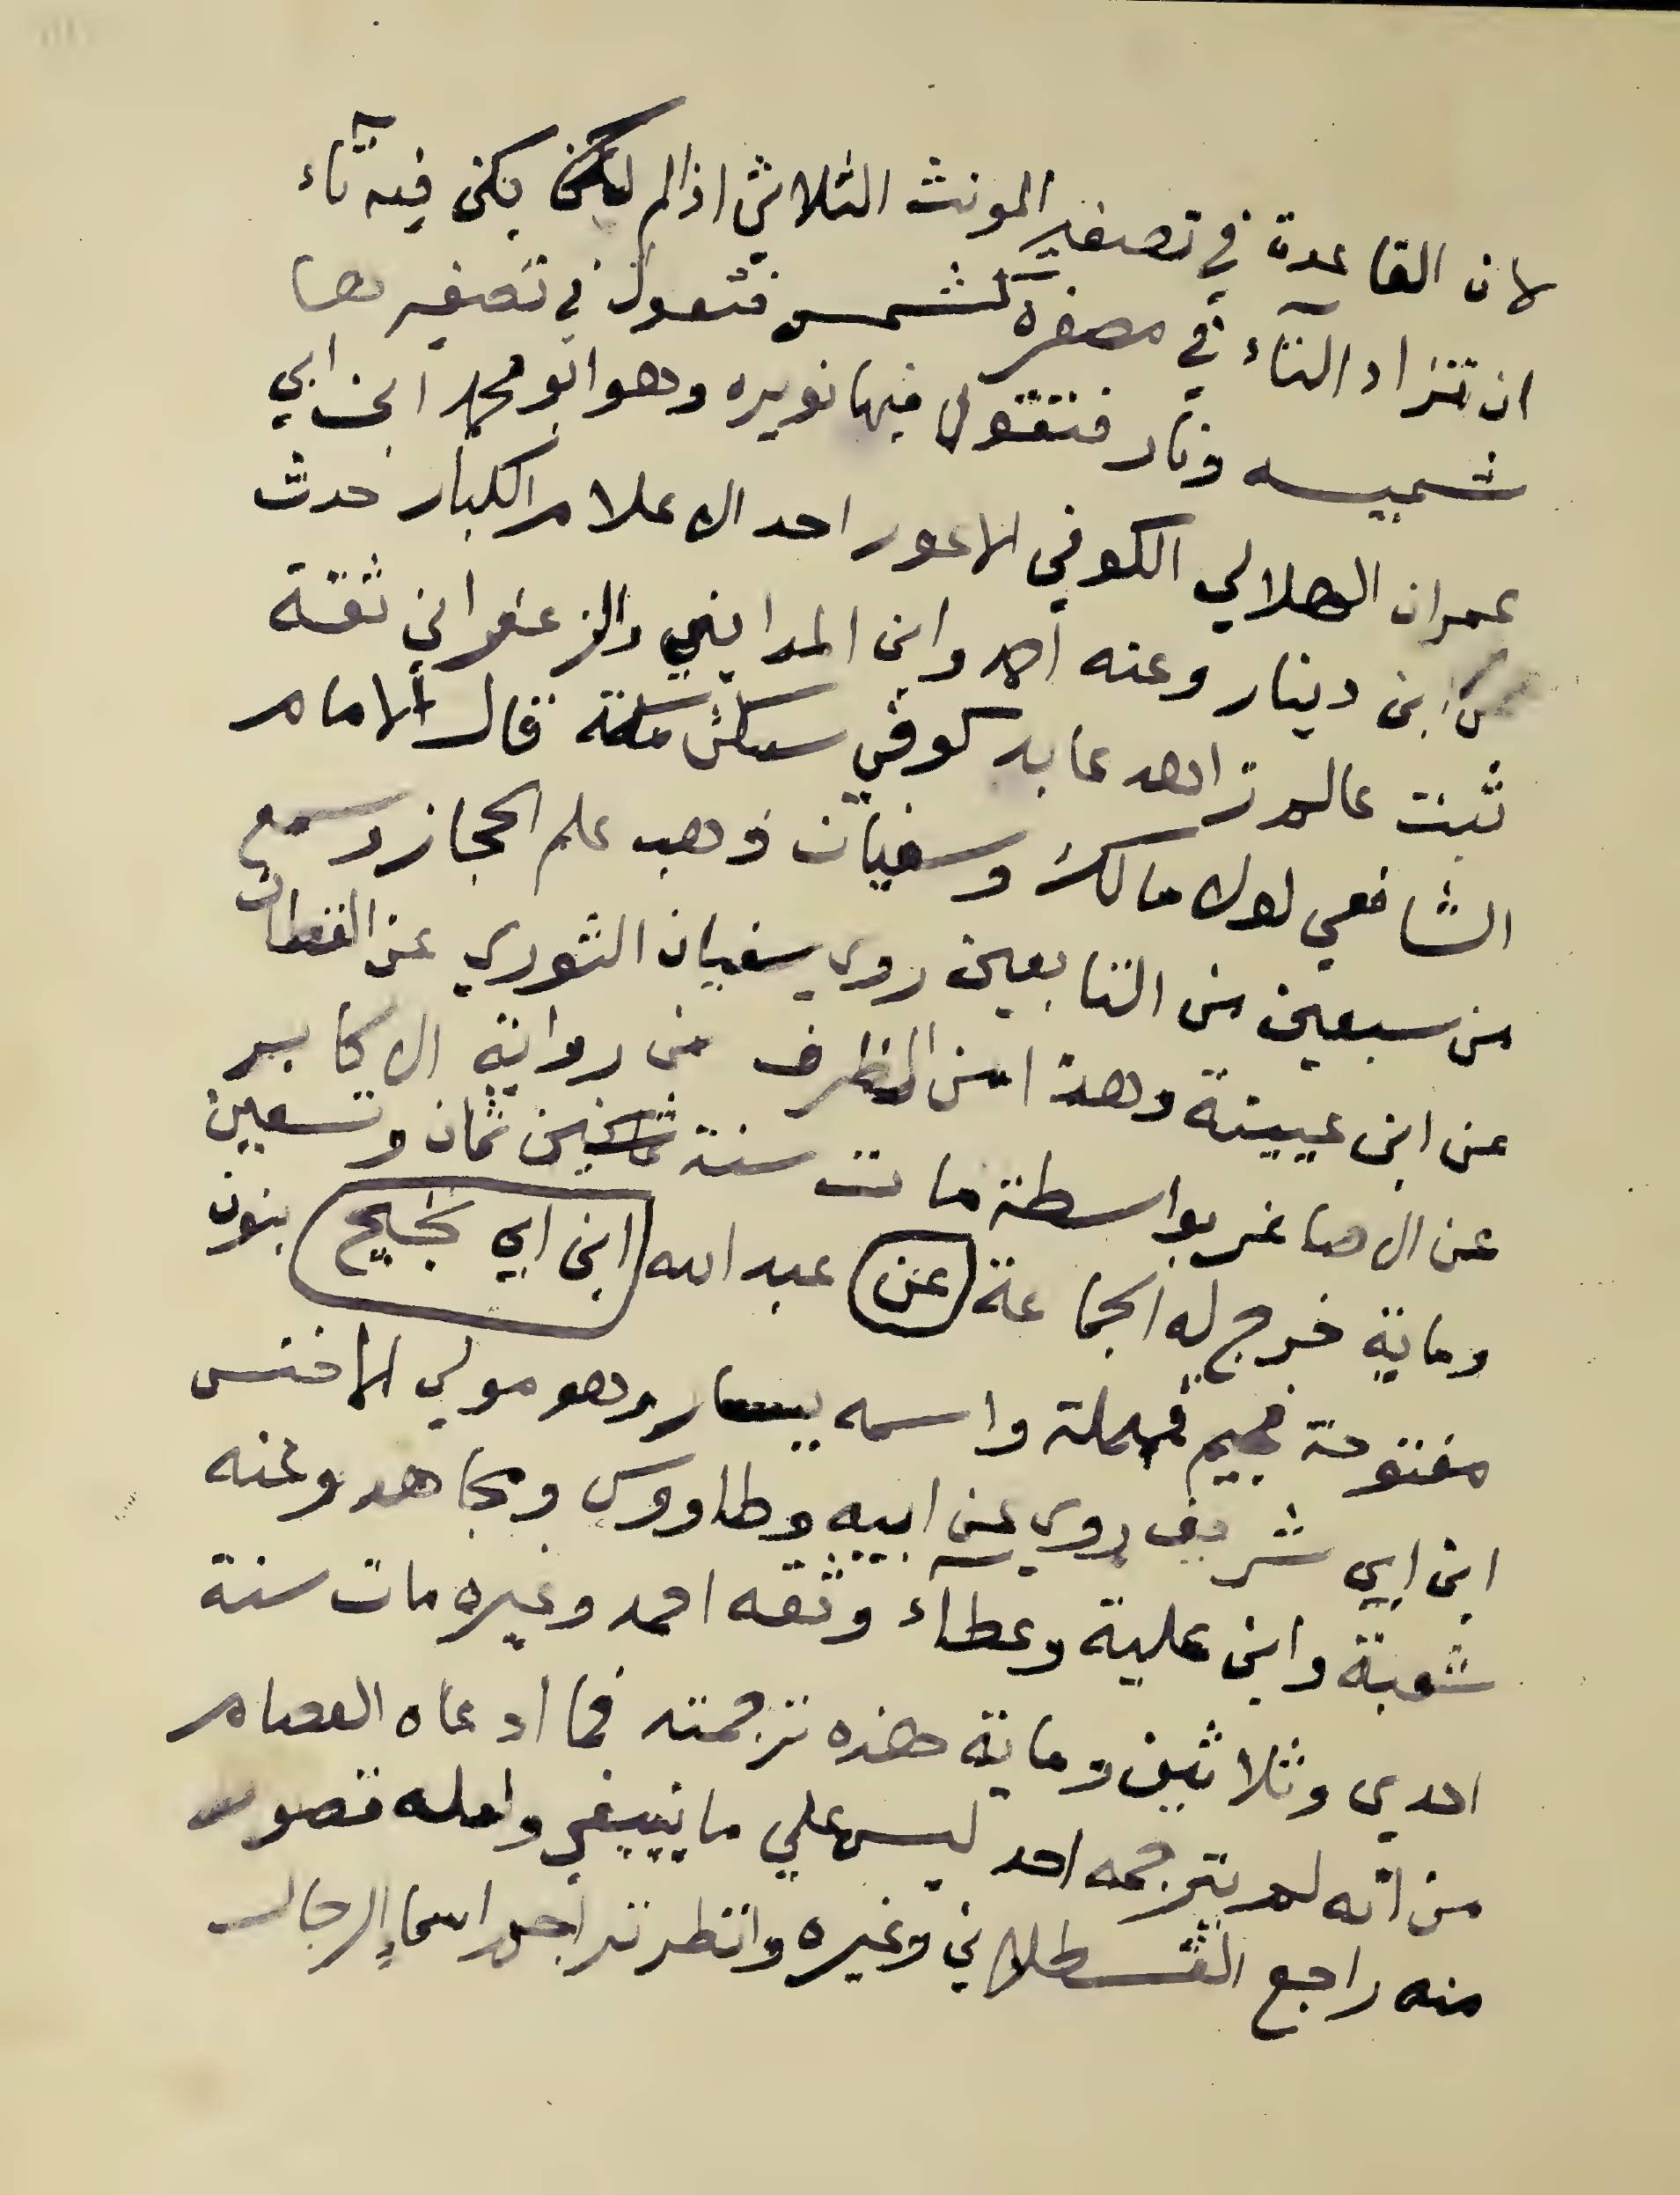 لان القاعدة في تصغير المونث الثلاثي اذا لم يكن فيه تآء
ان تزاد التآء في مصغره كشمس فتقول في تصغيرها
شميسه ونار فتقول فيها نويره وهو ابو محمد ابن ابي
عمران الهلالي الكوفي الاعور احد الاعلام الكبار حدث
عن ابن دينار وعنه احمد وابن المدايني والزعفراني ثقة
ثبت عالم زاهد عابد كوفي سكن مكة قال الامام
الشافعي لولا مالك وسفيان ذهب علم الحجاز وسمع
من سبعين من التابعين روي سفيان الثوري عن القطان
عن ابن عيينة وهذا من الظرف من رواية الاكابر
عن الاصاغر بواسطة مات سنة ثمان وتسعين
وماية خرج له الجماعة عن عبد الله ابن ابي نجيح بنون
مفتوحة فجيم فمهملة واسمه يسار وهو مولي الاخنس
ابن ابي شريف روي عن ابيه وطاووس ومجاهد وعنه
شعبة وابن علية وعطآء وثقه احمد وغيره مات سنة
احدي وثلاثين وماية هذه ترجمته فما ادعاه العصام
من انه لم يترجمه احد ليس علي ما ينبغي ولعله قصور
منه راجع القسطلاني وغيره وانظر تراجم اسما الرجال